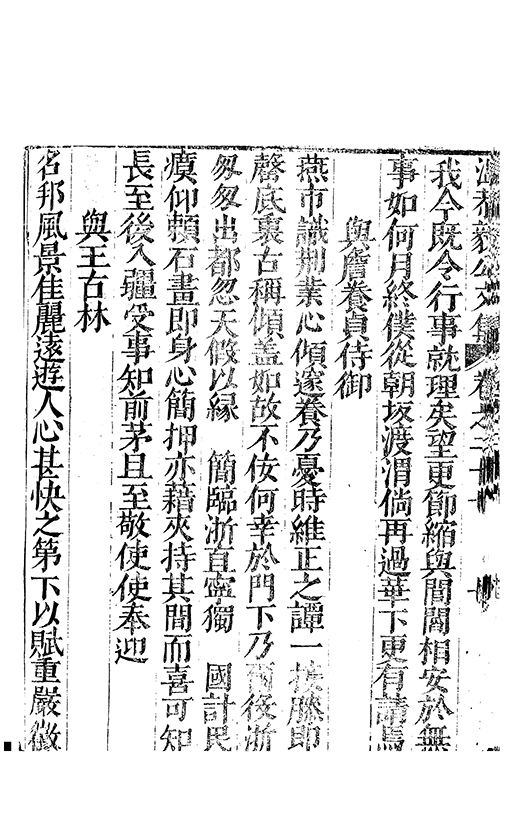 溫恭毅公文集 卷之二十
我今既令行事就理矣望更節縮與閭閻相安於無
事如何月終僕從朝坂渡渭倘再過華下更有請焉
與詹養貞侍御
燕市識荆業心傾邃養乃憂時維正之譚一接膝即
罄底裏古稱傾盖如故不佞何幸於門下乃爾後浙
匆匆出都忽天假以緣 簡臨浙直寧獨 國計民
瘼仰賴石畫即身心簡押亦藉夾持其間而喜可知
長至後入疆受事知前茅且至敬使使奉迎
與王古林
名邦風景佳麗遠遊人心甚快之第下以賦重嚴徵